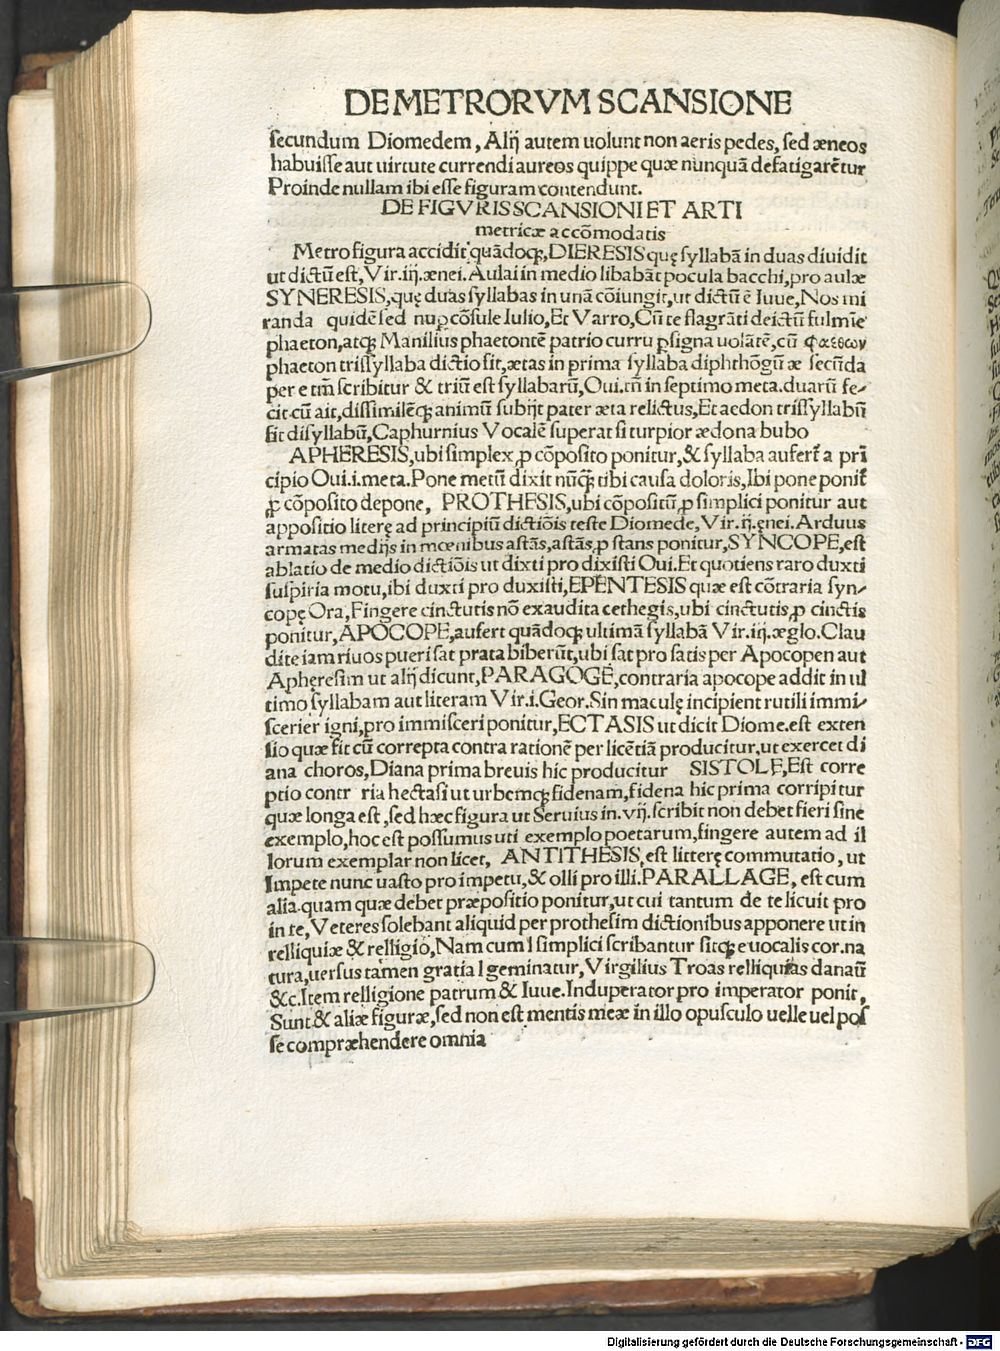 DE METRORVM SCANSIONE
ſecundum Diomedem, Alij autem uolunt non aeris pedes, ſed æneos
habuiſſe aut uirtute currendi aureos quippe quæ nunquā defatigarētur
Proinde nullam ibi eſſe figuram contendunt.
DE FIGVRIS SCANSIONI ET ARTI
metricæ accōmodatis
Metro figura accidit quādoqꝫ, DIERESIS quę ſyllabā in duas diuidit
ut dictū eſt, Vir.iij.ænei. Aulai in medio libabāt pocula bacchi, pro aulæ
SYNERESIS, quę duas ſyllabas in unā cōiungit, ut dictū ē Iuue, Nos mi
randa quidē ſed nuꝑ cōſule Iulio, Et Varro, Cū te flagrāti deictū fulmīe
phaeton, atqꝫ Manilius phaetontē patrio curru ꝑ ſigna uolātē, cū φαεθων
phaeton triſſyllaba dictio ſit, ætas in prima ſyllaba diphthōgū æ ſecūda
per e tm̄ ſcribitur & triū eſt ſyllabarū, Oui. tn̄ in ſeptimo meta. duarū fe-
cit cū ait, diſſimilēqꝫ animū ſubijt pater æta relictus, Et aedon triſſyllabū
fit diſyllabū, Caphurnius Vocalē ſuperat ſi turpior ædona bubo
APHERESIS, ubi ſimplex ꝓ cōpoſito ponitur, & ſyllaba aufert̄ a pri
cipio Oui.i.meta. Pone metū dixit nūqꝫ tibi cauſa doloris, Ibi pone ponit̄
ꝓ cōpoſito depone, PROTHESIS, ubi cōpoſitū ꝓ ſimplici ponitur aut
appoſitio literę ad principiū dictiōis teſte Diomede, Vir.ij.ęnei. Arduus
armatas medijs in mœnibus aſtās, aſtās ꝓ ſtans ponitur, SYNCOPE, eſt
ablatio de medio dictiōis ut dixti pro dixiſti Oui. Et quotiens raro duxti
ſuſpiria motu, ibi duxti pro duxiſti, EPENTESIS quæ eſt cōtraria ſyn-
copę Ora, Fingere cinctutis nō exaudita cethegis, ubi cinctutis ꝓ cinctis
ponitur, APOCOPE, aufert quādoqꝫ ultimā ſyllabā Vir.iij.æglo. Clau
dite iam riuos pueri ſat prata biberūt, ubi ſat pro ſatis per Apocopen aut
Apheręſim ut alij dicunt, PARAGOGE, contraria apocope addit in ul
timo ſyllabam aut literam Vir.i.Geor. Sin maculę incipient rutili immi-
ſcerier igni, pro immiſceri ponitur, ECTASIS ut dicit Diome. eſt exten
ſio quæ fit cū correpta contra rationē per licētiā producitur, ut exercet di
ana choros, Diana prima breuis hic producitur SISTOLE, Eſt corre
ptio contr ria hectaſi ut urbemqꝫ fidenam, fidena hic prima corripitur
quæ longa eſt, ſed hæc figura ut Seruius in .vij. ſcribit non debet fieri ſine
exemplo, hoc eſt poſſumus uti exemplo poetarum, fingere autem ad il
lorum exemplar non licet, ANTITHESIS, eſt litterę commutatio, ut
Impete nunc uaſto pro impetu, & olli pro illi. PARALLAGE, eſt cum
alia quam quæ debet præpoſitio ponitur, ut cui tantum de te licuit pro
in te, Veteres ſolebant aliquid per protheſim dictionibus apponere ut in
relliquiæ & relligio, Nam cum l ſimplici ſcribantur ſitqꝫ e uocalis cor. na
tura, uerſus tamen gratia l geminatur, Virgilius Troas relliquias danaū
&c. Item relligione patrum & Iuue. Induperator pro imperator ponit,
Sunt & aliæ figuræ, ſed non eſt mentis meæ in illo opuſculo uelle uel poſ
ſe compræhendere omnia
Digitalisierung gefördert durch die Deutsche Forschungsgemeinschaft - DFG